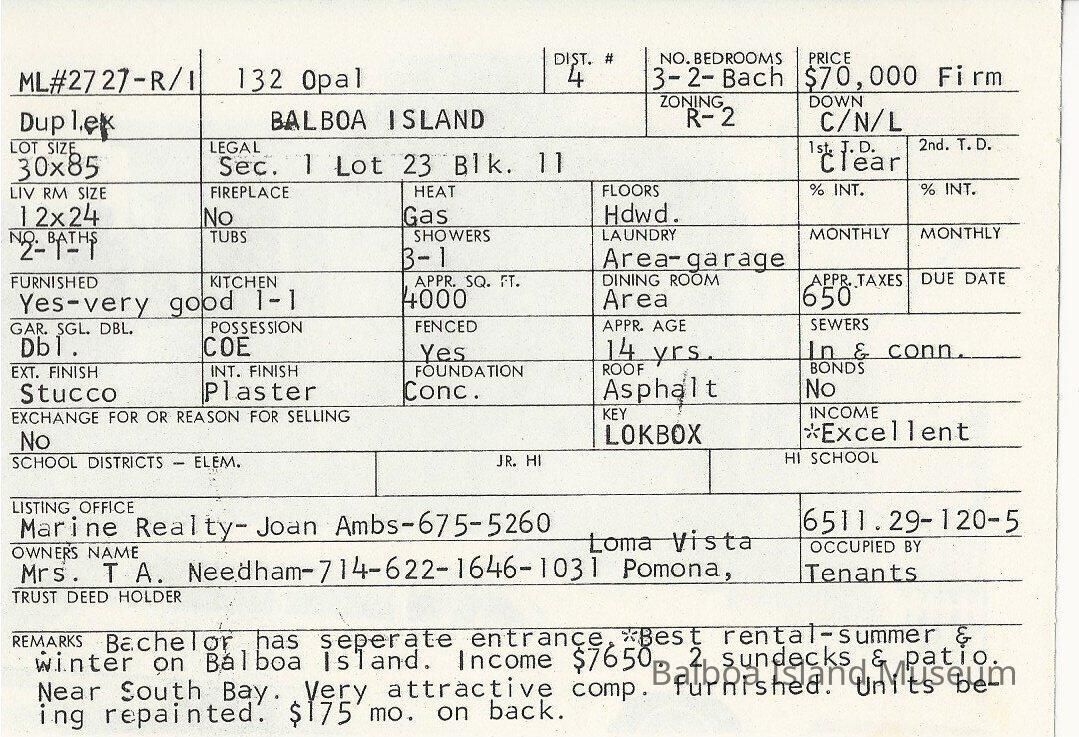 DIST. # NO. BEDROOMS PRICE
ML#2727-R/I 132 Opal 4 3-2-Bach $70,000 Firm
ZONING DOWN
Duplex BALBOA ISLAND R-2 C/N/L
LOT SIZE LEGAL 1st. T. D. 2nd. T. D.
30x85 Sec. 1 Lot 23 Blk. 11 Clear
LIV RM SIZE FIREPLACE HEAT FLOORS % INT. % INT.
12x24 No Gas Hdwd.
NO. BATHS TUBS SHOWERS LAUNDRY MONTHLY MONTHLY
2-1-1 3-1 Area-garage
FURNISHED KITCHEN APPR. SQ. FT. DINING ROOM APPR. TAXES DUE DATE
Yes-very good 1-1 4000 Area 650
GAR. SGL. DBL. POSSESSION FENCED APPR. AGE SEWERS
Dbl. COE Yes 14 yrs. In & conn.
EXT. FINISH INT. FINISH FOUNDATION ROOF BONDS
Stucco Plaster Conc. Asphalt No
EXCHANGE FOR OR REASON FOR SELLING KEY INCOME
No LOKBOX *Excellent
SCHOOL DISTRICTS — ELEM. JR. HI HI SCHOOL
LISTING OFFICE
Marine Realty-Joan Ambs-675-5260 6511.29-120-5
Loma Vista
OWNERS NAME OCCUPIED BY
Mrs. T A. Needham-714-622-1646-1031 Pomona, Tenants
TRUST DEED HOLDER
REMARKS Bachelor has seperate entrance.*Best rental-summer &
winter on Balboa Island. Income $7650. 2 sundecks & patio.
Balboa Island Museum
Near South Bay. Very attractive comp. furnished. Units be-
ing repainted. $175 mo. on back.